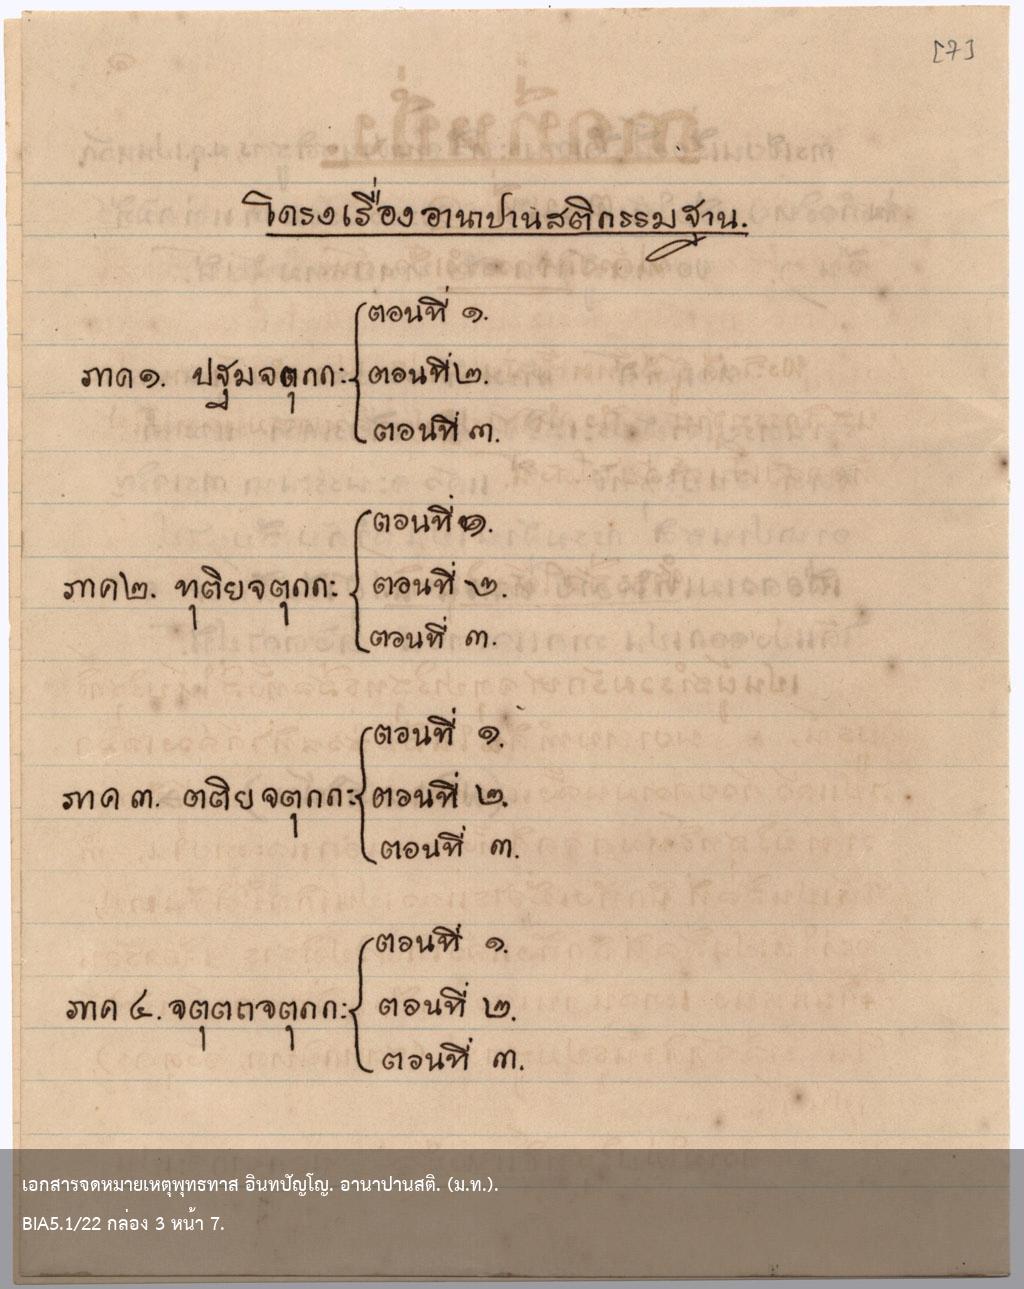 [7]
โครงเรื่องอานาปานสติกรรมฐาน.
ตอนที่ ๑.
ภาค ๑. ปฐมจตุกกะ ตอนที่ ๒.
ตอนที่ ๓.
ตอนที่ ๑.
ภาค ๒. ทุติยจตุกกะ ตอนที่ ๒.
ตอนที่ ๓.
ตอนที่ ๑.
ภาค ๓. ตติยจตุกกะ ตอนที่ ๒.
ตอนที่ ๓.
ตอนที่ ๑.
ภาค ๔. จตุตถจตุกกะ ตอนที่ ๒.
ตอนที่ ๓.
เอกสารจดหมายเหตุพุทธทาส อินทปัญโญ. อานาปานสติ. (ม.ท.).
BIA5.1/22 กล่อง 3 หน้า 7.